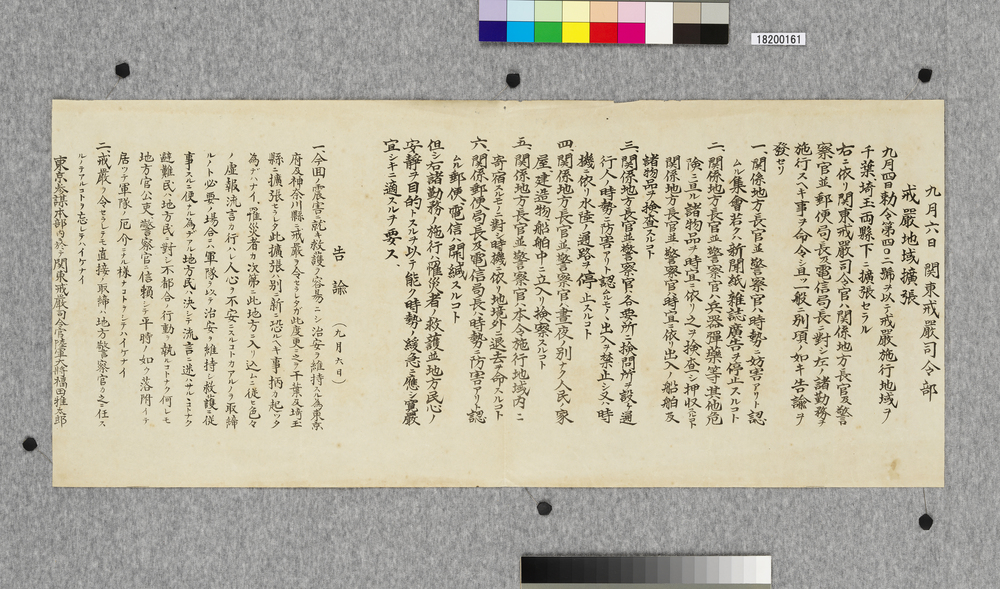 九月六日 関東戒嚴司令部
戒嚴地域擴張
九月四日勅令第四〇二號ヲ以テ戒嚴施行地域ヲ
千葉、埼玉両縣下ニ擴張セラル
右ニ依リ関東戒嚴司令官ハ関係地方長官及警
察官並郵便局長及電信局長ニ對シ左ノ諸勤務ヲ
施行スヘキ事ヲ命令シ且ツ一般ニ別項ノ如キ告諭ヲ
發セリ
一、関係地方長官並警察官ハ時勢ニ妨害アリト認
ムル集會若クハ新聞紙雜誌廣告ヲ停止スルコト
二、関係地方長官並警察官ハ兵器彈藥等其他危
険ニ亘ル諸物品ヲ時宜ニ依リ之ヲ検査シ押収スルコト
関係地方長官並警察官ハ時宜ニ依リ出入ノ船舶及
諸物品ヲ検査スルコト
三、関係地方長官並警察官ハ各要所ニ検問所ヲ設ケ通
行人ノ時勢ニ防害アリト認ムルモノノ出入ヲ禁止シ又ハ時
機ニ依リ水陸ノ通路ヲ停止スルコト
四、関係地方長官並警察官ハ晝夜ノ別ナク人民ノ家
屋、建造物、船舶中ニ立入リ検察スルコト
五、関係地方長官並警察官ハ本令施行地域内ニ
寄宿スルモノニ對シ時機ニ依リ地境外ニ退去ヲ命スルコト
六、関係郵便局長及電信局長ハ時勢ニ防害アリト認
ムル郵便、電信ヲ開緘スルコト
但シ右諸勤務ノ施行ハ罹災者ノ救護並地方民心ノ
安静ヲ目的トスルヲ以テ能ク時勢ノ緩急ニ應シ寛嚴
宜シキニ適スルヲ要ス、
告諭 (九月六日)
一、今回ノ震害ニ就キ救護ヲ容易ニシ治安ヲ維持スル為東京
府及神奈川縣ニ戒嚴ヲ令セラレタガ此度更ニ之ヲ千葉及埼玉
縣ニ擴張セラレタ此擴張ハ別ニ新ニ恐ルヘキ事柄カ起ツタ
為デハナイ、罹災者カ次第ニ此地方ニ入リ込ムニ從ヒ色々
ノ虚報流言カ行ハレ人心ヲ不安ニスルコトカアルノヲ取締
ルノト必要ノ場合ニハ軍隊ヲ以テ治安ヲ維持シ救護ニ從
事スルニ便ナル為デアル地方民ハ決シテ流言ニ迷ハサルコトナク
避難民ハ地方民ニ對シ不都合ノ行動ニ就ルコトナク何レモ
地方官公吏、警察官ニ信頼シテ平時ノ如ク落附イテ
居ツテ軍隊ノ厄介ニナル様ナコトヲシテハイケナイ
二、戒嚴ヲ令セラレテモ直接ノ取締ハ地方警察官カ之ニ任ス
ルノテアルコトヲ忘レテハイケナイ
東京参謀本部内ニ於テ関東戒嚴司令官陸軍大将福田雅太郎